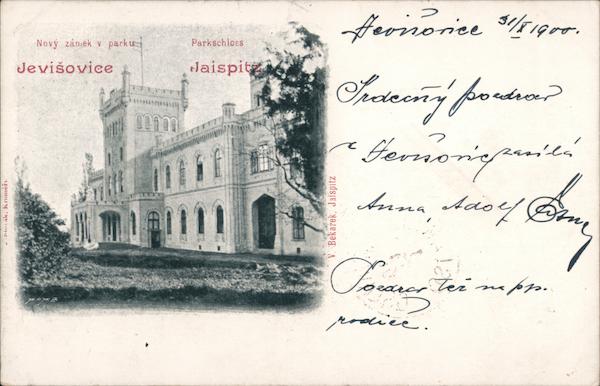 Nový zámek v parku. Parkschloss
Jevišovice Jaispitz
V. Bekárek, Jaispitz
Jevišovice 31/X 1900.
Srdečný pozdrav
z Jevišovic zasílá
Anna, Adolf
Pozdrav též na pp.
rodiče.